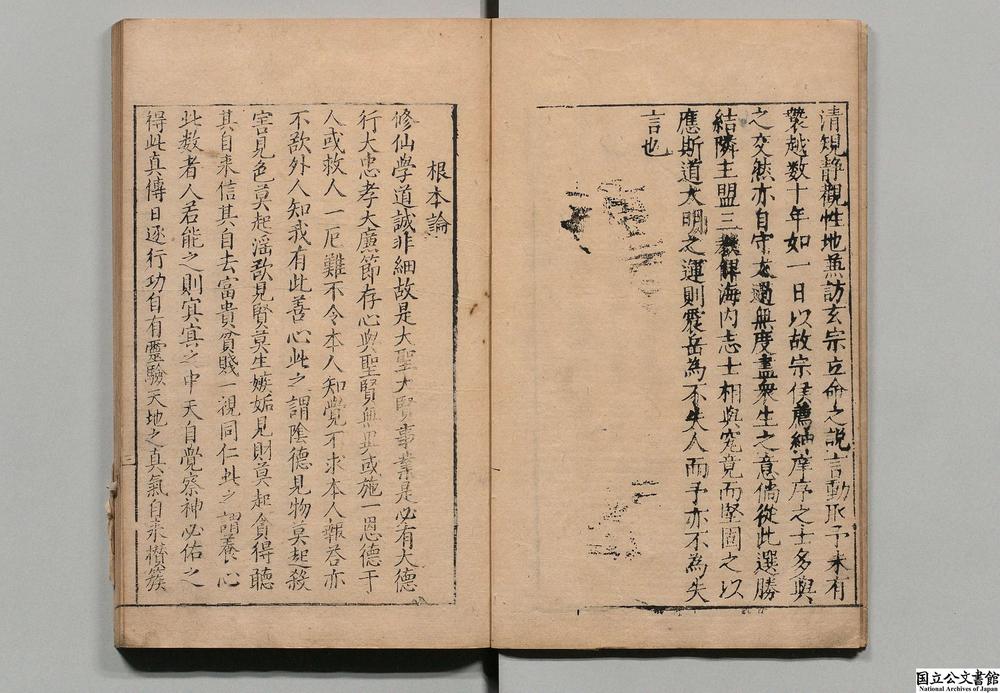 清規靜觀性地兼訪玄宗立命之說言動取予未有
褻越数十年如一日以故宗侯薦紳庠序之士多與
之交然亦自守尤過無度盡衆生之意倘從此選勝
結隣主盟三教觧海内志士相與究竟而堅固之以
應斯道大明之運則霞岳為不失人而予亦不為失
言也
根本論
修仙學道誠非細故是大聖大賢事業是必有大德
行大忠孝大廉節存心與聖賢無異或施一恩德于
人或救人一厄難不令本人知覺不求本人報荅亦
不欲外人知我有此善心此之謂陰德見物莫起殺
害見色莫起滛欲見賢莫生嫉妬見財莫起貪得聽
其自来信其自去富貴貧賤一視同仁此之謂養心
此数者人若能之則冥冥之中天自覺察神必佑之
得此真傳日逐行功自有靈驗天地之真氣自来攢簇
三
国立公文書館
National Archives of Japan